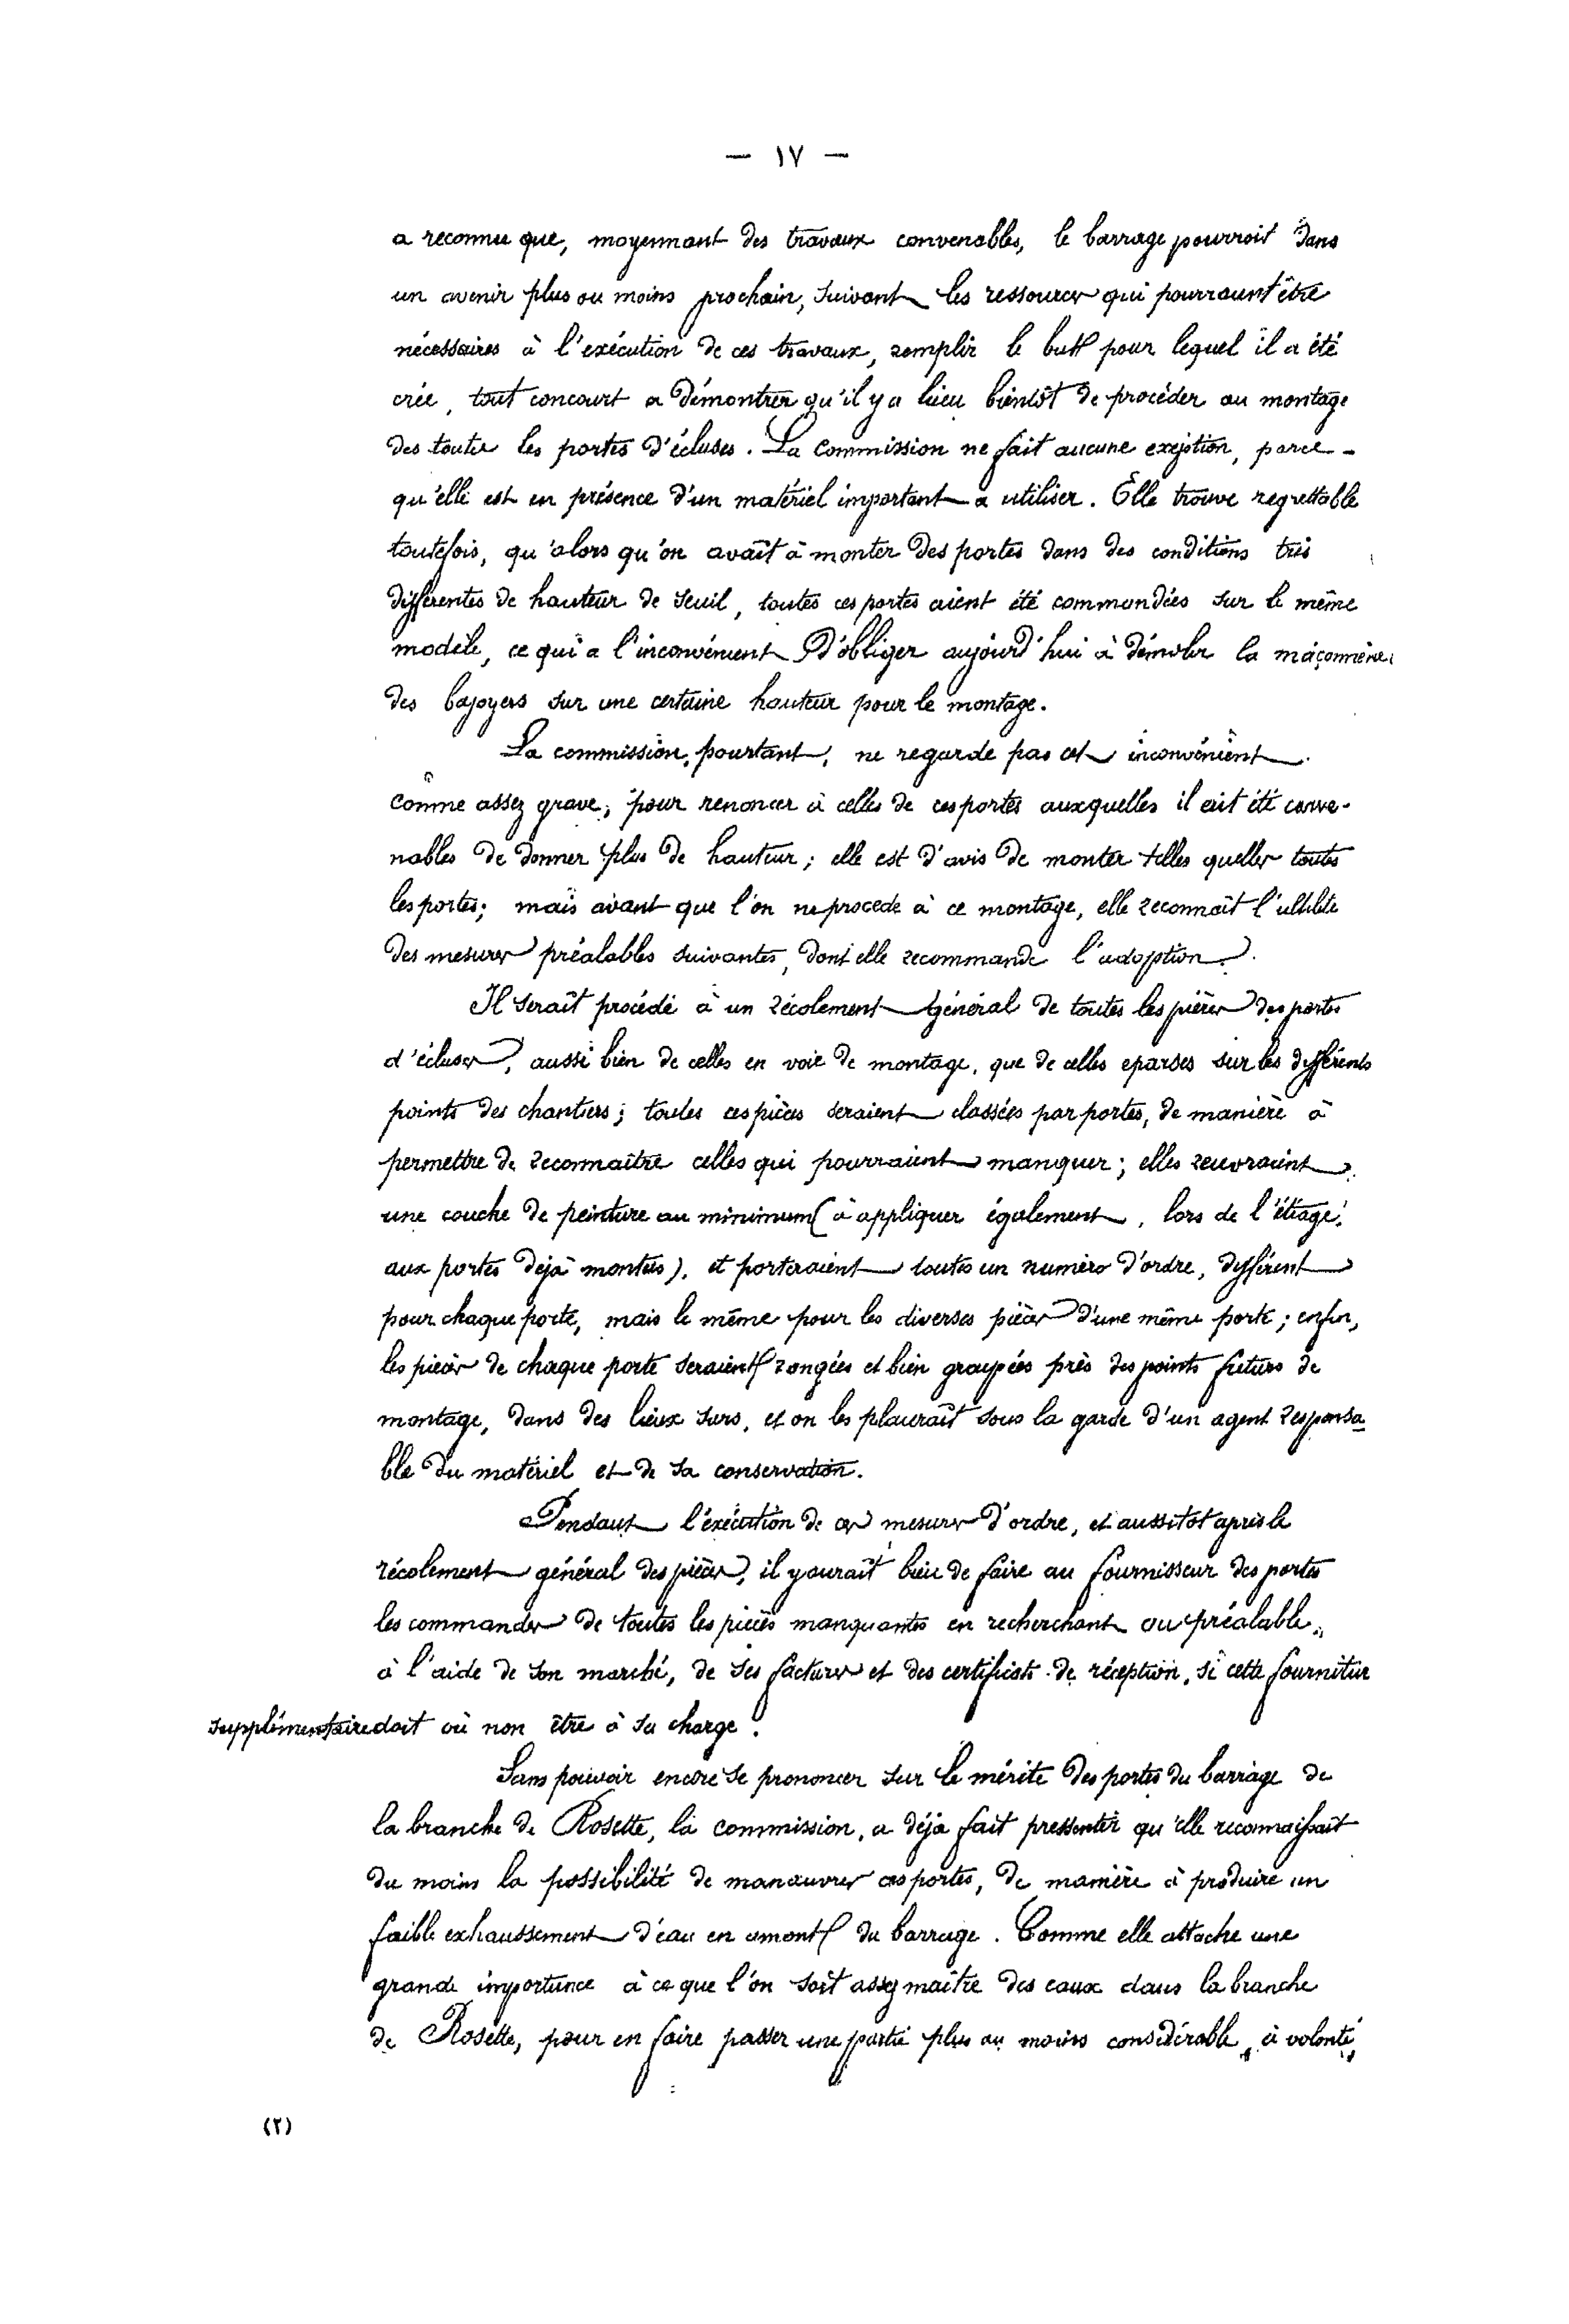 — ١٧ —
a reconnu que, moyennant des travaux convenables, le barrage pourroit dans
un avenir plus ou moins prochain, suivant les ressources qui pourraunt être
nécessaires à l'exécution de ces travaux, remplir le but pour lequel il a été
crée, tout concourt a démontrer qu'il y a lieu bientôt de procéder au montage
des toutes les portes d'écluses. La Commission ne fait aucune exeption, parce-
qu'elle est en présence d'un matériel important a utiliser. Elle trouve regrettable
toutefois, qu'alors qu'on avait à monter des portes dans des conditions très
différentes de hauteur de seuil, toutes ces portes aient été commandées sur le même
modèle, ce qui a l'inconvénient d'obliger aujourd'hui à démolir la maçonnerie
des bajoyers sur une certaine hauteur pour le montage.
La commission, pourtant, ne regarde pas cet inconvénient
comme assez grave, pour renoncer à celles de ces portes auxquelles il eût été conve-
nables de donner plus de hauteur; elle est d'avis de monter telles quelles toutes
les portes; mais avant que l'on ne procede à ce montage, elle reconnaît l'utilité
des mesures préalables suivantes, dont elle recommande l'adoption.
Il serait procédé à un récolement général de toutes les pièces des portes
d'écluses, aussi bien de celles en voie de montage, que de celles eparses sur les différents
points des chantiers; toutes ces pièces seraient classées par portes, de manière à
permettre de reconnaître celles qui pourraient manquer; elles recevraient
une couche de peinture au minimum (à appliquer également, lors de l'étiage,
aux portes dejà montées), et porteraient toutes un numéro d'ordre, différent
pour chaque porte, mais le même pour les diverses pièces d'une même porte; enfin,
les pieces de chaque porte seraient rangées et bien groupées près des points futurs de
montage, dans des lieux surs, et on les placerait sous la garde d'un agent responsa-
ble du matériel et de sa conservation.
Pendant l'exécution de ces mesures d'ordre, et aussitot après le
récolement général des pièces, il y aurait lieu de faire au fournisseur des portes
les commandes de toutes les pièces manquantes en recherchant au préalable,
à l'aide de son marché, de ses factures et des certificats de réception, si cette fourniture
supplémentaire doit où non être à sa charge.
Sans pouvoir encore se prononcer sur le mérite des portes du barrage de
la branche de Rosette, la commission, a déjà fait pressentir qu'elle reconnaissait
du moins la possibilité de manœuvrer ces portes, de manière à produire un
faible exhaussement d'eau en amont du barrage. Comme elle attache une
grande importance à ce que l'on soit assez maître des eaux dans la branche
de Rosette, pour en faire passer une partie plus ou moins considérable, à volonté,
(٢)